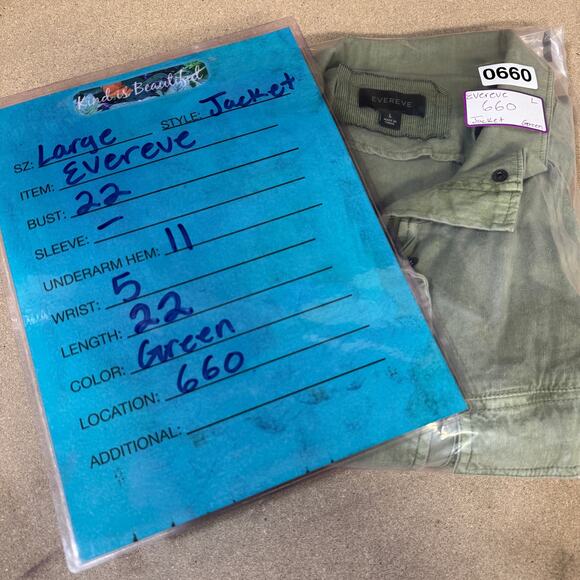 Kind is Beautiful
SZ: Large STYLE: Jacket
ITEM: Evereve
BUST: 22
SLEEVE: —
UNDERARM HEM: 11
WRIST: 5
LENGTH: 22
COLOR: Green
LOCATION: 660
ADDITIONAL:
EVEREVE
L
0660
Evereve L
660
Jacket Green